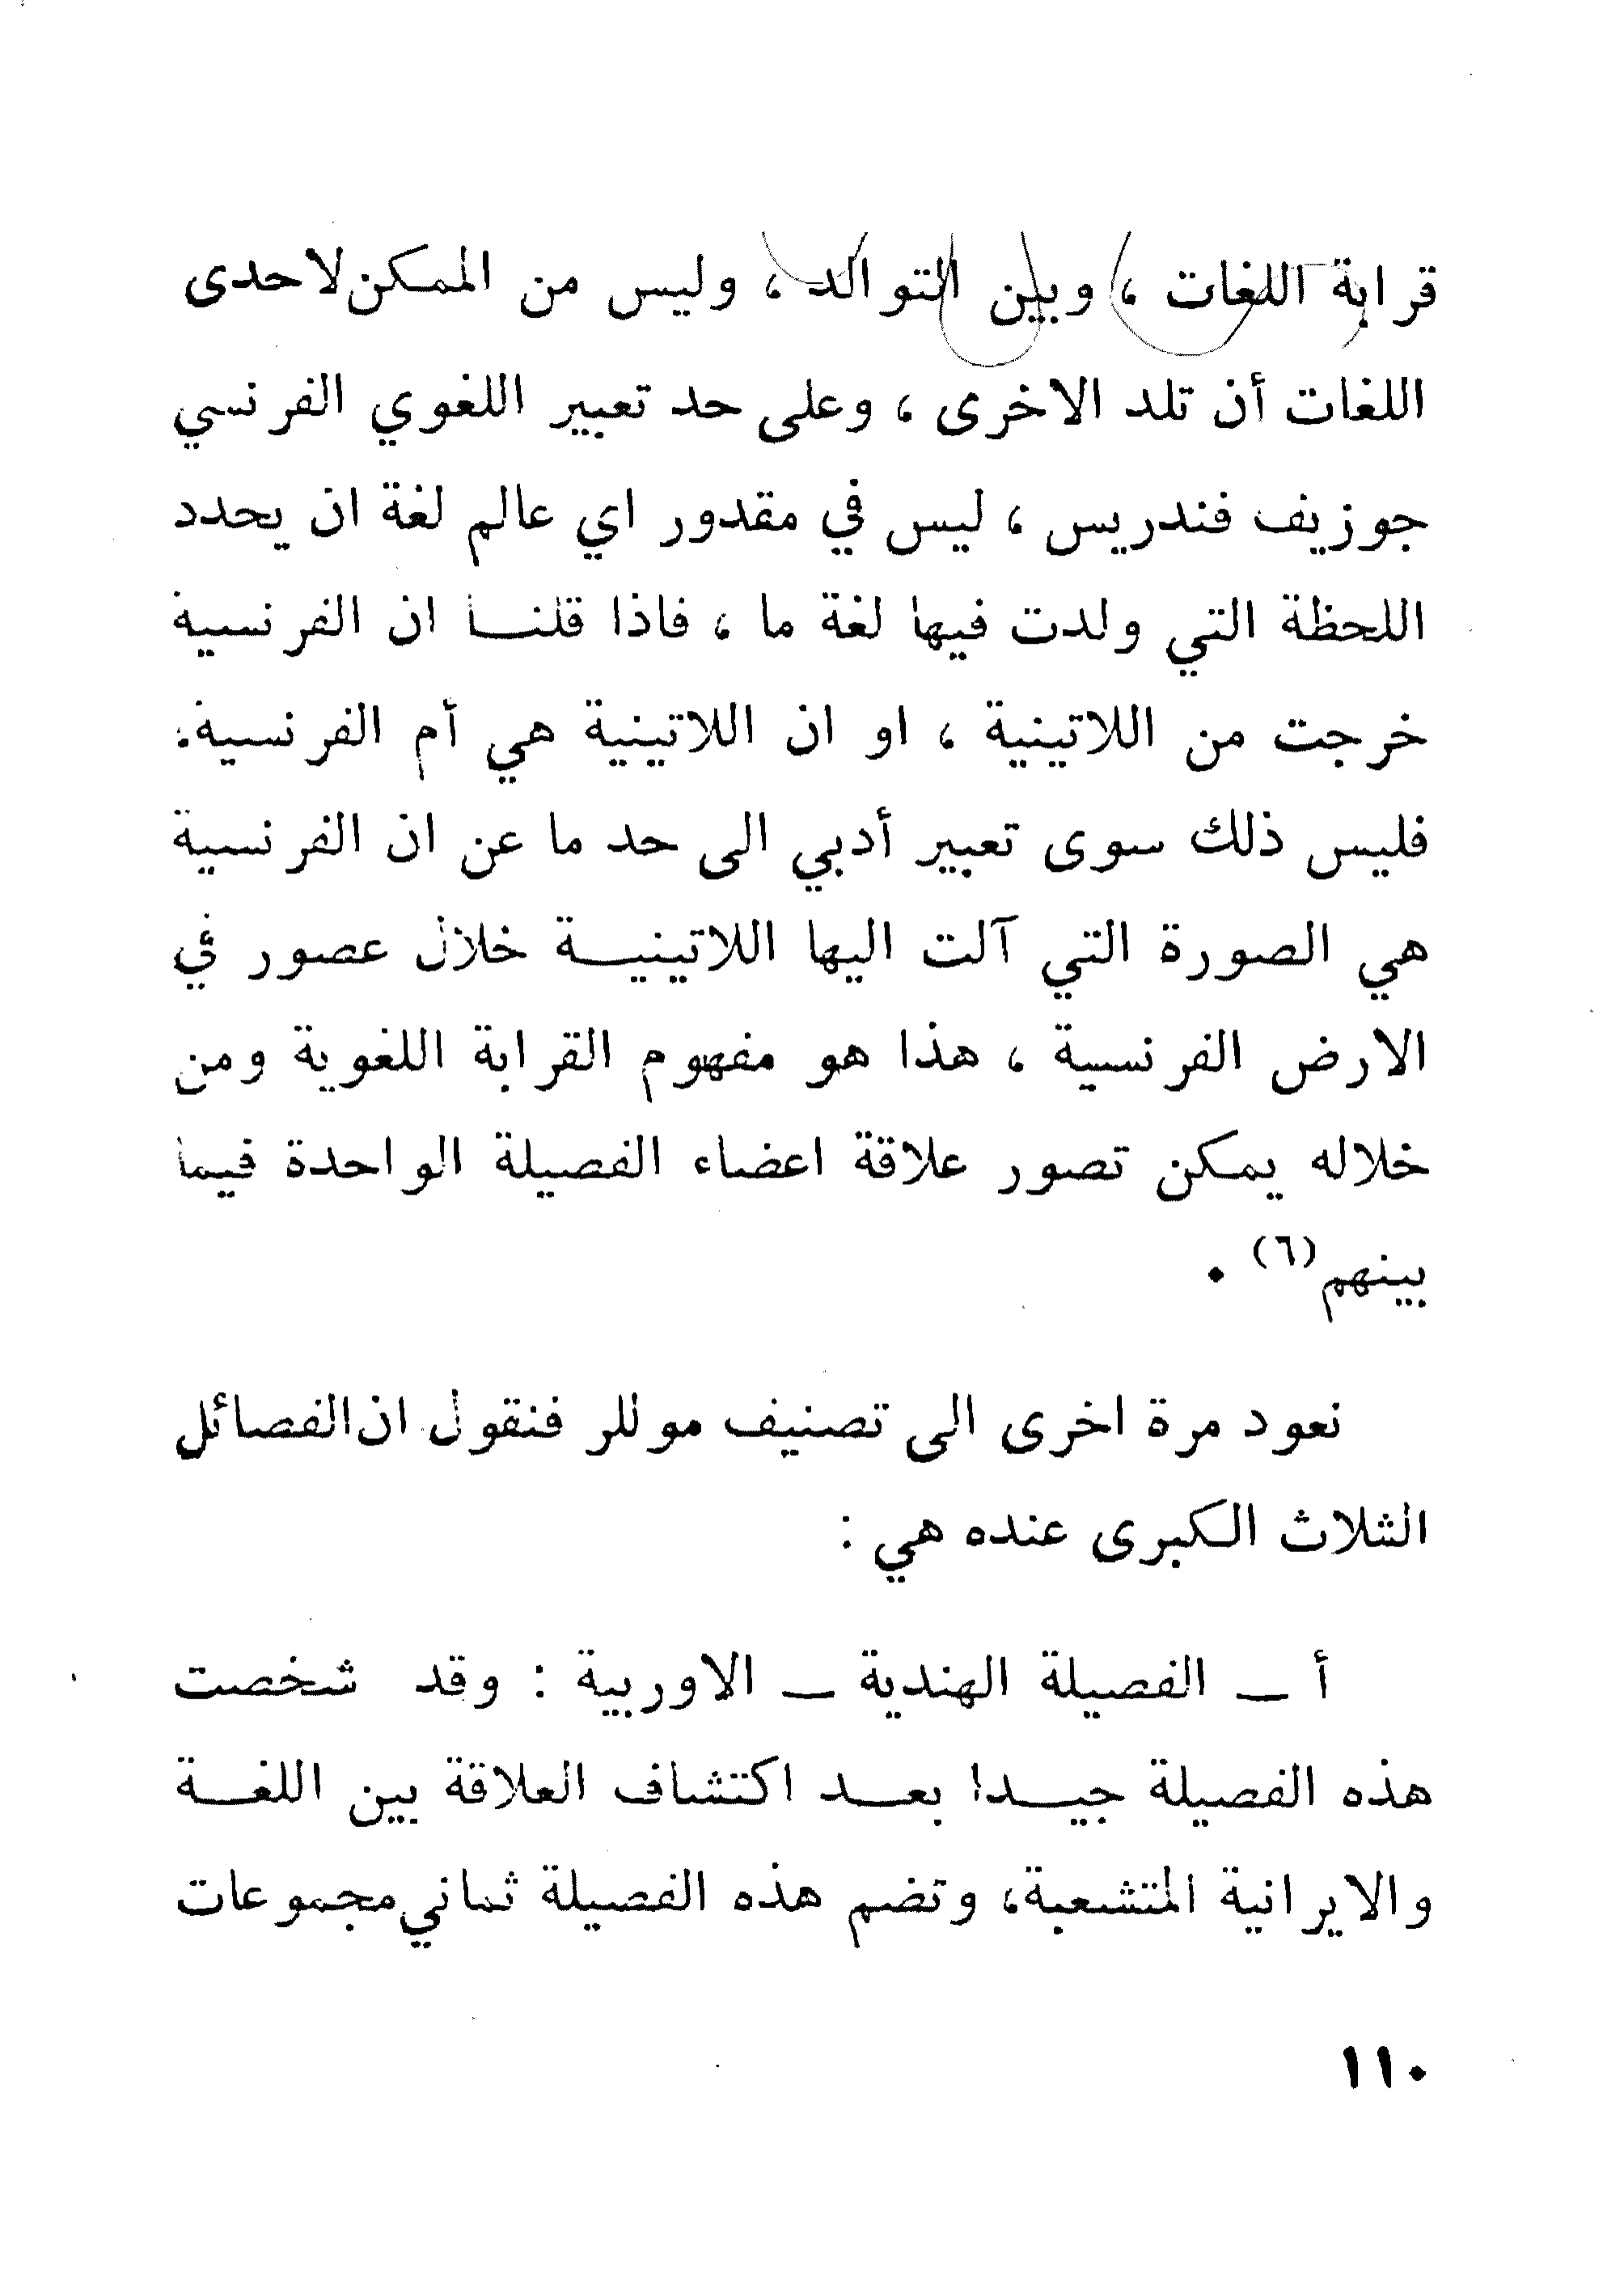 قرابة اللغات ، وبين التوالد ، وليس من الممكن لاحدى
اللغات أن تلد الاخرى ، وعلى حد تعبير اللغوي الفرنسي
جوزيف فندريس ، ليس في مقدور اي عالم لغة ان يحدد
اللحظة التي ولدت فيها لغة ما ، فاذا قلنا ان الفرنسية
خرجت من اللاتينية ، او ان اللاتينية هي أم الفرنسية.
فليس ذلك سوى تعبير أدبي الى حد ما عن ان الفرنسية
هي الصورة التي آلت اليها اللاتينية خلال عصور في
الارض الفرنسية ، هذا هو مفهوم القرابة اللغوية ومن
خلاله يمكن تصور علاقة اعضاء الفصيلة الواحدة فيما
بينهم (٦) .
نعود مرة اخرى الى تصنيف موللر فنقول ان الفصائل
الثلاث الكبرى عنده هي :
أ ــ الفصيلة الهندية ــ الاوربية : وقد شخصت
هذه الفصيلة جيدا بعد اكتشاف العلاقة بين اللغة
والايرانية المتشعبة، وتضم هذه الفصيلة ثماني مجموعات
١١٠